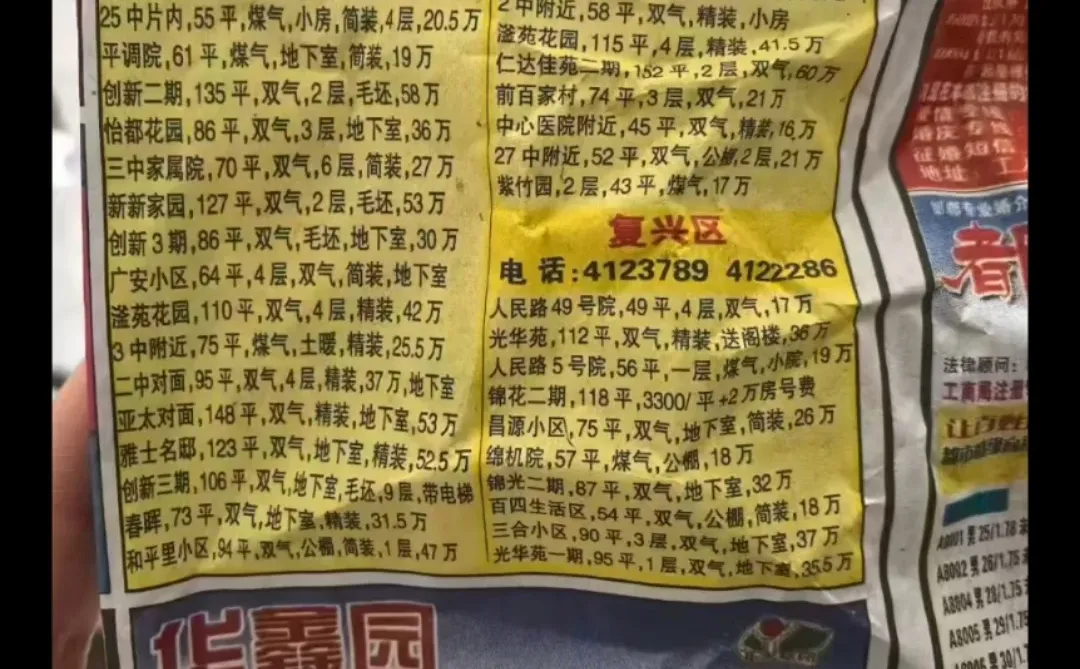 25中片内,55平,煤气,小房,简装,4层,20.5万
平调院,61平,煤气,地下室,简装,19万
创新二期,135平,双气,2层,毛坯,58万
怡都花园,86平,双气,3层,地下室,36万
三中家属院,70平,双气,6层,简装,27万
新新家园,127平,双气,2层,毛坯,53万
创新3期,86平,双气,毛坯,地下室,30万
广安小区,64平,4层,双气,简装,地下室
滏苑花园,110平,双气,4层,精装,42万
3中附近,75平,煤气,土暖,精装,25.5万
二中对面,95平,双气,4层,精装,37万,地下室
亚太对面,148平,双气,精装,地下室,53万
雅士名邸,123平,双气,地下室,精装,52.5万
创新三期,106平,双气,地下室,毛坯,9层,带电梯
春晖,73平,双气,地下室,精装,31.5万
和平里小区,94平,双气,公棚,简装,1层,47万
2中附近,58平,双气,精装,小房
滏苑花园,115平,4层,精装,41.5万
仁达佳苑二期,152平,2层,双气,60万
前百家村,74平,3层,双气,21万
中心医院附近,45平,双气,精装,16万
27中附近,52平,双气,公棚,2层,21万
紫竹园,2层,43平,煤气,17万
复兴区
电话:4123789 4122286
人民路49号院,49平,4层,双气,17万
光华苑,112平,双气,精装,送阁楼,36万
人民路5号院,56平,一层,煤气,小院,19万
锦花二期,118平,3300/平+2万房号费
昌源小区,75平,双气,地下室,简装,26万
绵机院,57平,煤气,公棚,18万
锦光二期,87平,双气,地下室,32万
百四生活区,54平,双气,公棚,简装,18万
三合小区,90平,3层,双气,地下室,37万
光华苑一期,95平,1层,双气,地下室,35.5万
华鑫园
征婚短信
地址:工
者
法律顾问:
工商局注册
A8001男25/1.78
A8002男26/1.75
A8004男28/1.75
A8005男29/1.75